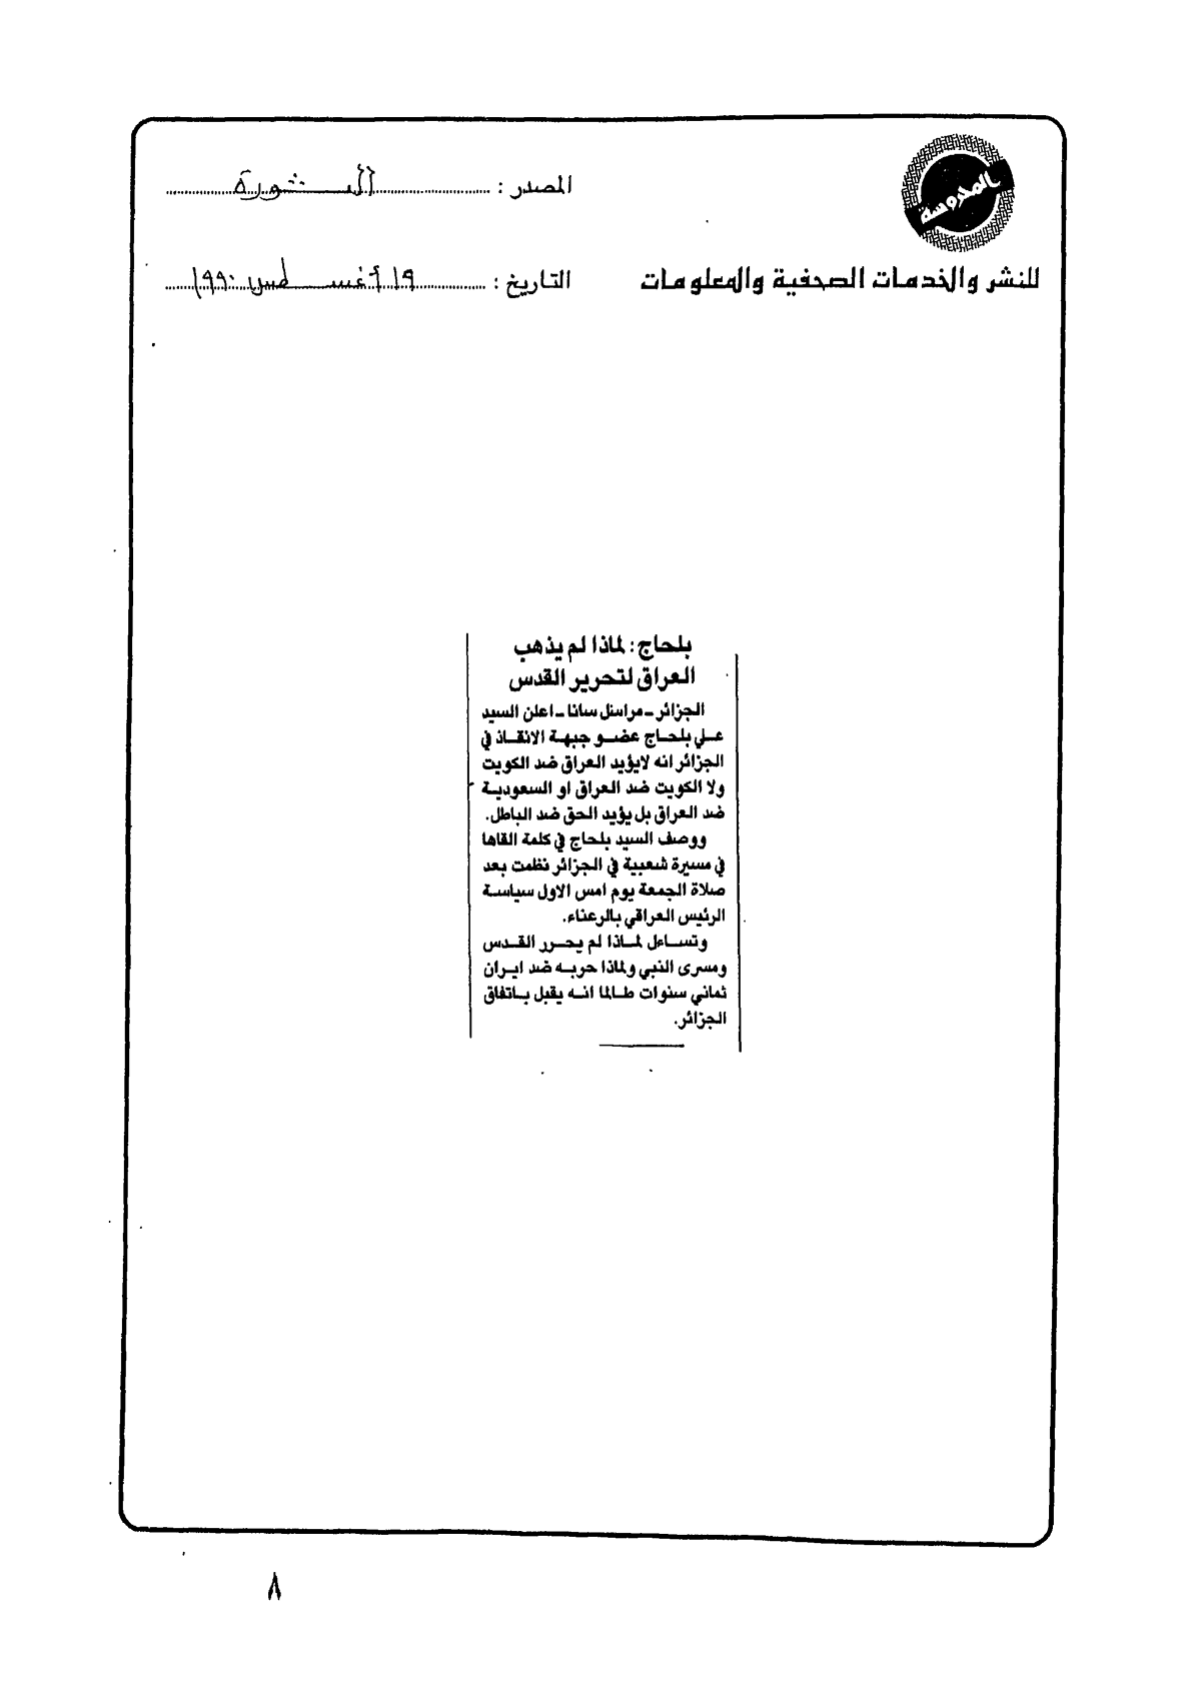 المحروسة
للنشر والخدمات الصحفية والمعلومات
المصدر : الثورة
التاريخ : ١٩ أغسطس ١٩٩٠
بلحاج : لماذا لم يذهب
العراق لتحرير القدس
الجزائر ـ مراسل سانا ـ اعلن السيد
علي بلحاج عضو جبهة الانقاذ في
الجزائر انه لايؤيد العراق ضد الكويت
ولا الكويت ضد العراق او السعودية
ضد العراق بل يؤيد الحق ضد الباطل.
ووصف السيد بلحاج في كلمة القاها
في مسيرة شعبية في الجزائر نظمت بعد
صلاة الجمعة يوم امس الاول سياسة
الرئيس العراقي بالرعناء.
وتساءل لماذا لم يحرر القدس
ومسرى النبي ولماذا حربه ضد ايران
ثماني سنوات طالما انه يقبل باتفاق
الجزائر.
٨